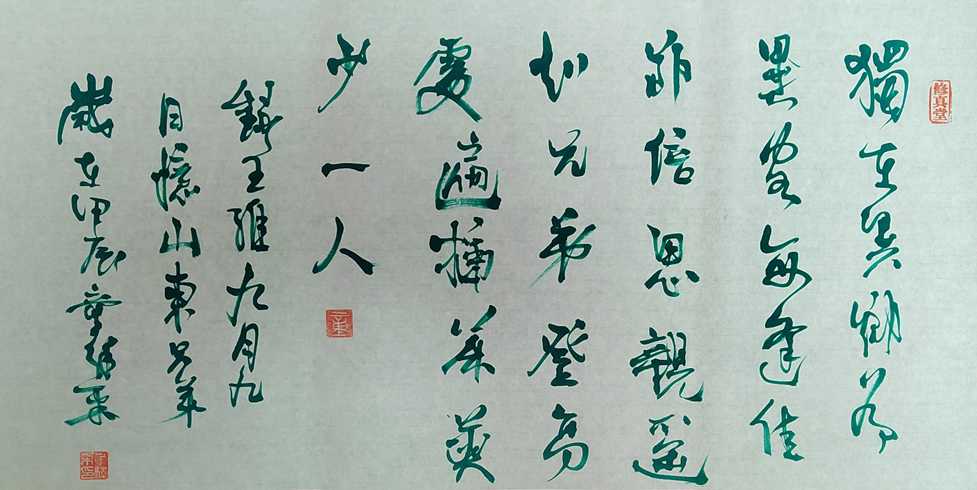 修真堂
獨在異鄉為
異客每逢佳
節倍思親遥
知兄弟登高
處遍插茱萸
少一人
錄王維九月九
日憶山東兄弟
歲在甲辰童